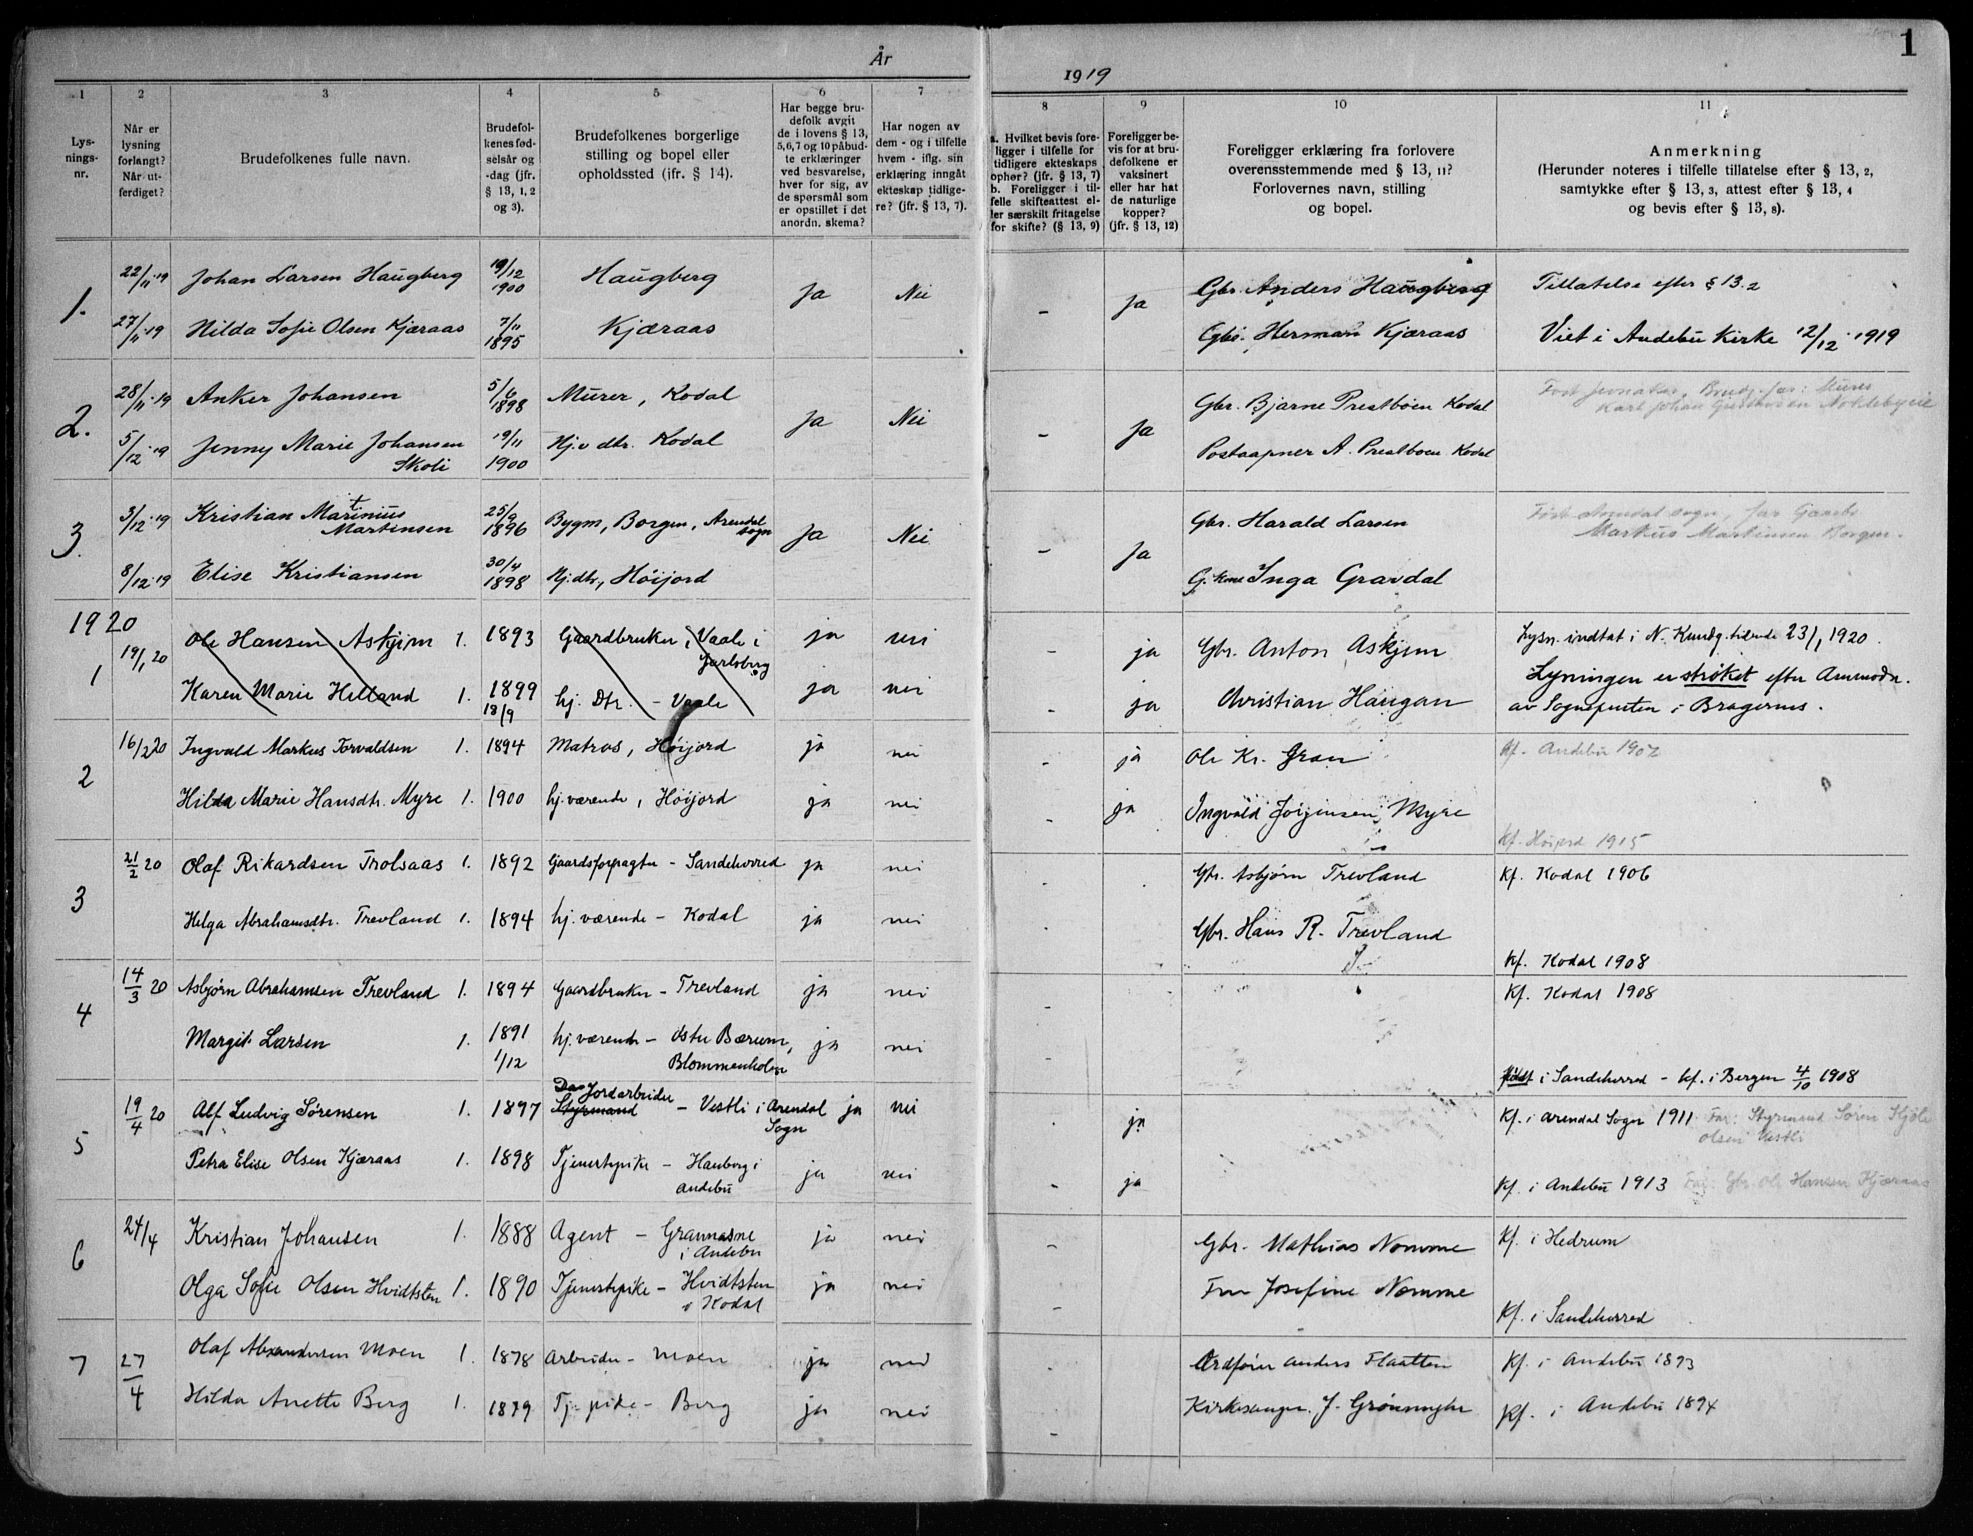 1
År
1919
1
2
3
4
5
6
7
8
9
10
11
Lys-
nings-
nr.
Når er
lysning
forlangt?
Når ut-
ferdiget?
Brudefolkenes fulle navn.
Brudefol-
kenes fød-
selsår og
-dag (jfr.
§ 13, 1, 2
og 3).
Brudefolkenes borgerlige
stilling og bopel eller
opholdssted (jfr. § 14).
Har begge bru-
defolk avgit
de i lovens § 13,
5,6,7 og 10 påbud-
te erklæringer
ved besvarelse,
hver for sig, av
de spørsmål som
er opstillet i det
anordn. skema?
Har nogen av
dem - og i tilfelle
hvem - iflg. sin
erklæring inngått
ekteskap tidlige-
re? (jfr. § 13, 7).
a. Hvilket bevis fore-
ligger i tilfelle for
tidligere ekteskaps
ophør? (jfr. § 13, 7)
b. Foreligger i til-
felle skifteattest el-
ler særskilt fritagelse
for skifte? (§ 13, 9)
Foreligger be-
vis for at bru-
defolkene er
vaksinert
eller har hat
de naturlige
kopper?
(jfr. § 13, 12)
Foreligger erklæring fra forlovere
overensstemmende med § 13, 11?
Forlovernes navn, stilling
og bopel.
Anmerkning
(Herunder noteres i tilfelle tillatelse efter § 13, 2,
samtykke efter § 13, 3, attest efter § 13, 4
og bevis efter § 13, 8).
1. 22/11 19 Johan Larsen Haugberg 19/12 1900 Haugberg Ja Nei - Ja Gbr. Anders Haugberg Tillatelse efter § 13.2
27/11 19 Hilda Sofie Olsen Kjæraas 7/11 1895 Kjæraas Gbr. Herman Kjæraas Viet i Andebu Kirke 12/12 1919
2. 28/11 19 Anker Johansen 5/6 1898 Murer, Kodal Ja Nei - Ja Gbr. Bjarne Prestbøen Kodal
Karl Johan Gustavsen
5/12 19 Jenny Marie Johansen 19/11 1900 Hj.v dtr. Kodal Postaapner A. Prestbøen Kodal
Skoli
3. 3/12 19 Kristian Martinius 25/9 1896 Bygm, Borgen, Arendal Ja Nei - Ja Gbr. Harald Larsen
Martinsen sogn Markus Martinsen Borgen.
8/12 19 Elise Kristiansen 30/4 1898 Hj.dtr, Höijord Inga Gravdal
1920
1 19/1 20 Ole Hansen Askjem 1. 1893 Gaardbruker, Vaale i ja nei - ja Gbr. Anton Askjem Lysn. indtat i N. Kundg.tidende 23/1 1920.
Jarlsberg
Karen Marie Helland 1. 1899 18/9 hj. Dtr. - Vaale ja nei - ja Christian Haugan Lysningen er strøket efter Anmodn.
av Sognepresten i Bragernes.
2 16/2 20 Ingvald Markus Torvaldsen 1. 1894 Matros, Höijord ja nei - ja Ole Kr. Gran Kf. Andebu 1907
Hilda Marie Hansdtr. Myre 1. 1900 hj.værende, Höijord ja nei - ja Ingvald Jörgensen Myre
Kf. Höijord 1915
3 21/2 20 Olaf Rikardsen Trolsaas 1. 1892 Gaardsforpagter - Sandeherred ja nei - Gbr. Asbjørn Trevland Kf. Kodal 1906
Helga Abrahamsdtr. Trevland 1. 1894 hj. værende - Kodal ja nei Gbr. Hans R. Trevland
Kf. Kodal 1908
4 14/3 20 Asbjørn Abrahamsen Trevland 1. 1894 Gaardbruker - Trevland ja nei - Kf. Kodal 1908
Margit Larsen 1. 1891 1/12 hj. værende - Østre Bærum, ja nei -
Blommenholm
født i Sandeherred - kf. i Bergen 4/10 1908
Jordarbeider
5 19/4 20 Alf Ludvig Sørensen 1. 1897 Styrmand - Vestli i Arendal ja nei ja Kf. i Arendal Sogn 1911 Far: Styrmand Sören Kjöle
Sogn Olsen Vestli
Petra Elise Olsen Kjæraas 1. 1898 Tjenestepike - Hauberg i ja nei - ja Kf. i Andebu 1913 Far: Gbr. Ole Hansen Kjæraas
Andebu
6 24/4 Kristian Johansen 1. 1888 Agent - Grannæsne ja nei - Gbr. Mathias Nomme Kf. i Hedrum
i Andebu
Olga Sofie Olsen Hvidtsten 1. 1890 Tjenestepike - Hvidtsten ja nei - Fru Josefine Nomme
i Kodal
Kf. i Sandeherred
7 27/4 Olaf Alexandersen Moen 1. 1878 Arbeider - Moen ja nei - Ordfører Anders Flaatten Kf. i Andebu 1893
Hilda Anette Berg 1. 1879 Tj. pike - Berg ja nei - Kirkesanger J. Grønnyhr Kf. i Andebu 1894